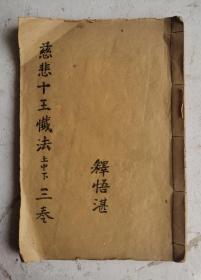 慈悲十王懺法上中下三卷
釋悟湛